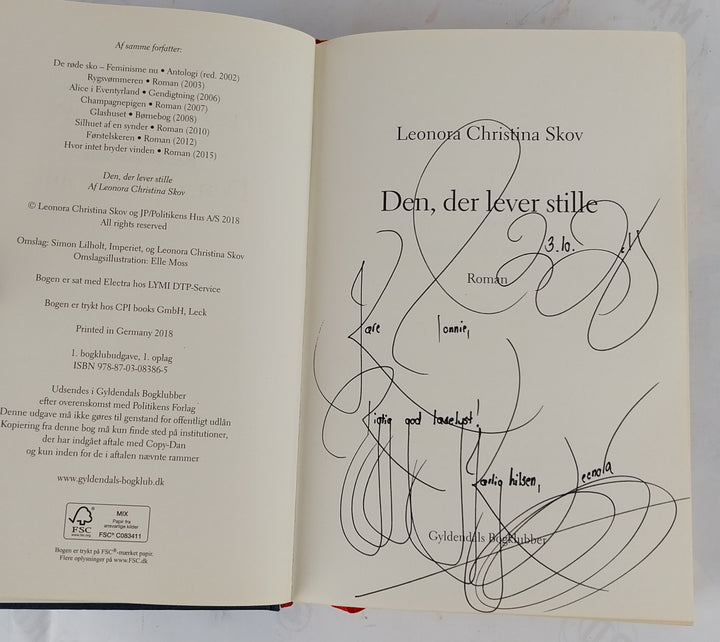 Af samme forfatter:
De røde sko – Feminisme nu • Antologi (red. 2002)
Rygsvømmeren • Roman (2003)
Alice i Eventyrland • Gendigtning (2006)
Champagnepigen • Roman (2007)
Glashuset • Børnebog (2008)
Silhuet af en synder • Roman (2010)
Førstelskeren • Roman (2012)
Hvor intet bryder vinden • Roman (2015)
Den, der lever stille
Af Leonora Christina Skov
© Leonora Christina Skov og JP/Politikens Hus A/S 2018
All rights reserved
Omslag: Simon Lilholt, Imperiet, og Leonora Christina Skov
Omslagsillustration: Elle Moss
Bogen er sat med Electra hos LYMI DTP-Service
Bogen er trykt hos CPI books GmbH, Leck
Printed in Germany 2018
1. bogklubudgave, 1. oplag
ISBN 978-87-03-08386-5
Udsendes i Gyldendals Bogklubber
efter overenskomst med Politikens Forlag
Denne udgave må ikke gøres til genstand for offentligt udlån
Kopiering fra denne bog må kun finde sted på institutioner,
der har indgået aftale med Copy-Dan
og kun inden for de i aftalen nævnte rammer
www.gyldendals-bogklub.dk
FSC
www.fsc.org
MIX
Papir fra
ansvarlige kilder
FSC® C083411
Bogen er trykt på FSC®-mærket papir.
Flere oplysninger på www.FSC.dk
Leonora Christina Skov
Den, der lever stille
3.10.
Roman
Kære
god læselyst!
Kærlig hilsen,
Gyldendals Bogklubber